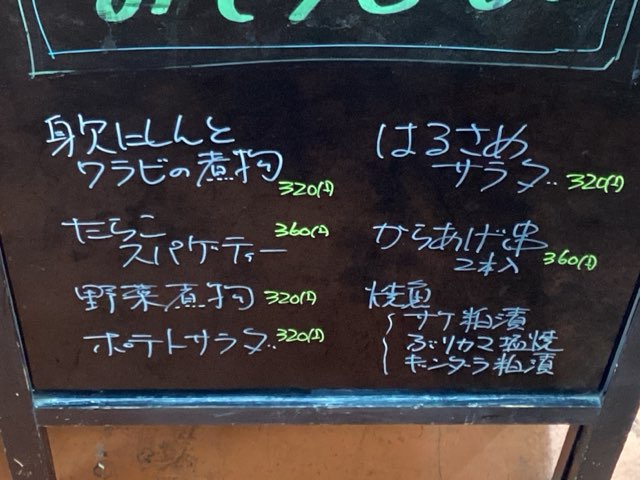 身欠にしんと
ワラビの煮物 320(上)
たらこ 360(上)
スパゲーティー
野菜煮物 320(上)
ポテトサラダ 320(上)
はるさめ
サラダ 320(上)
からあげ串
2本入 360(上)
焼魚
サケ粕漬
ぶりカマ塩焼
キンダーラ粕漬